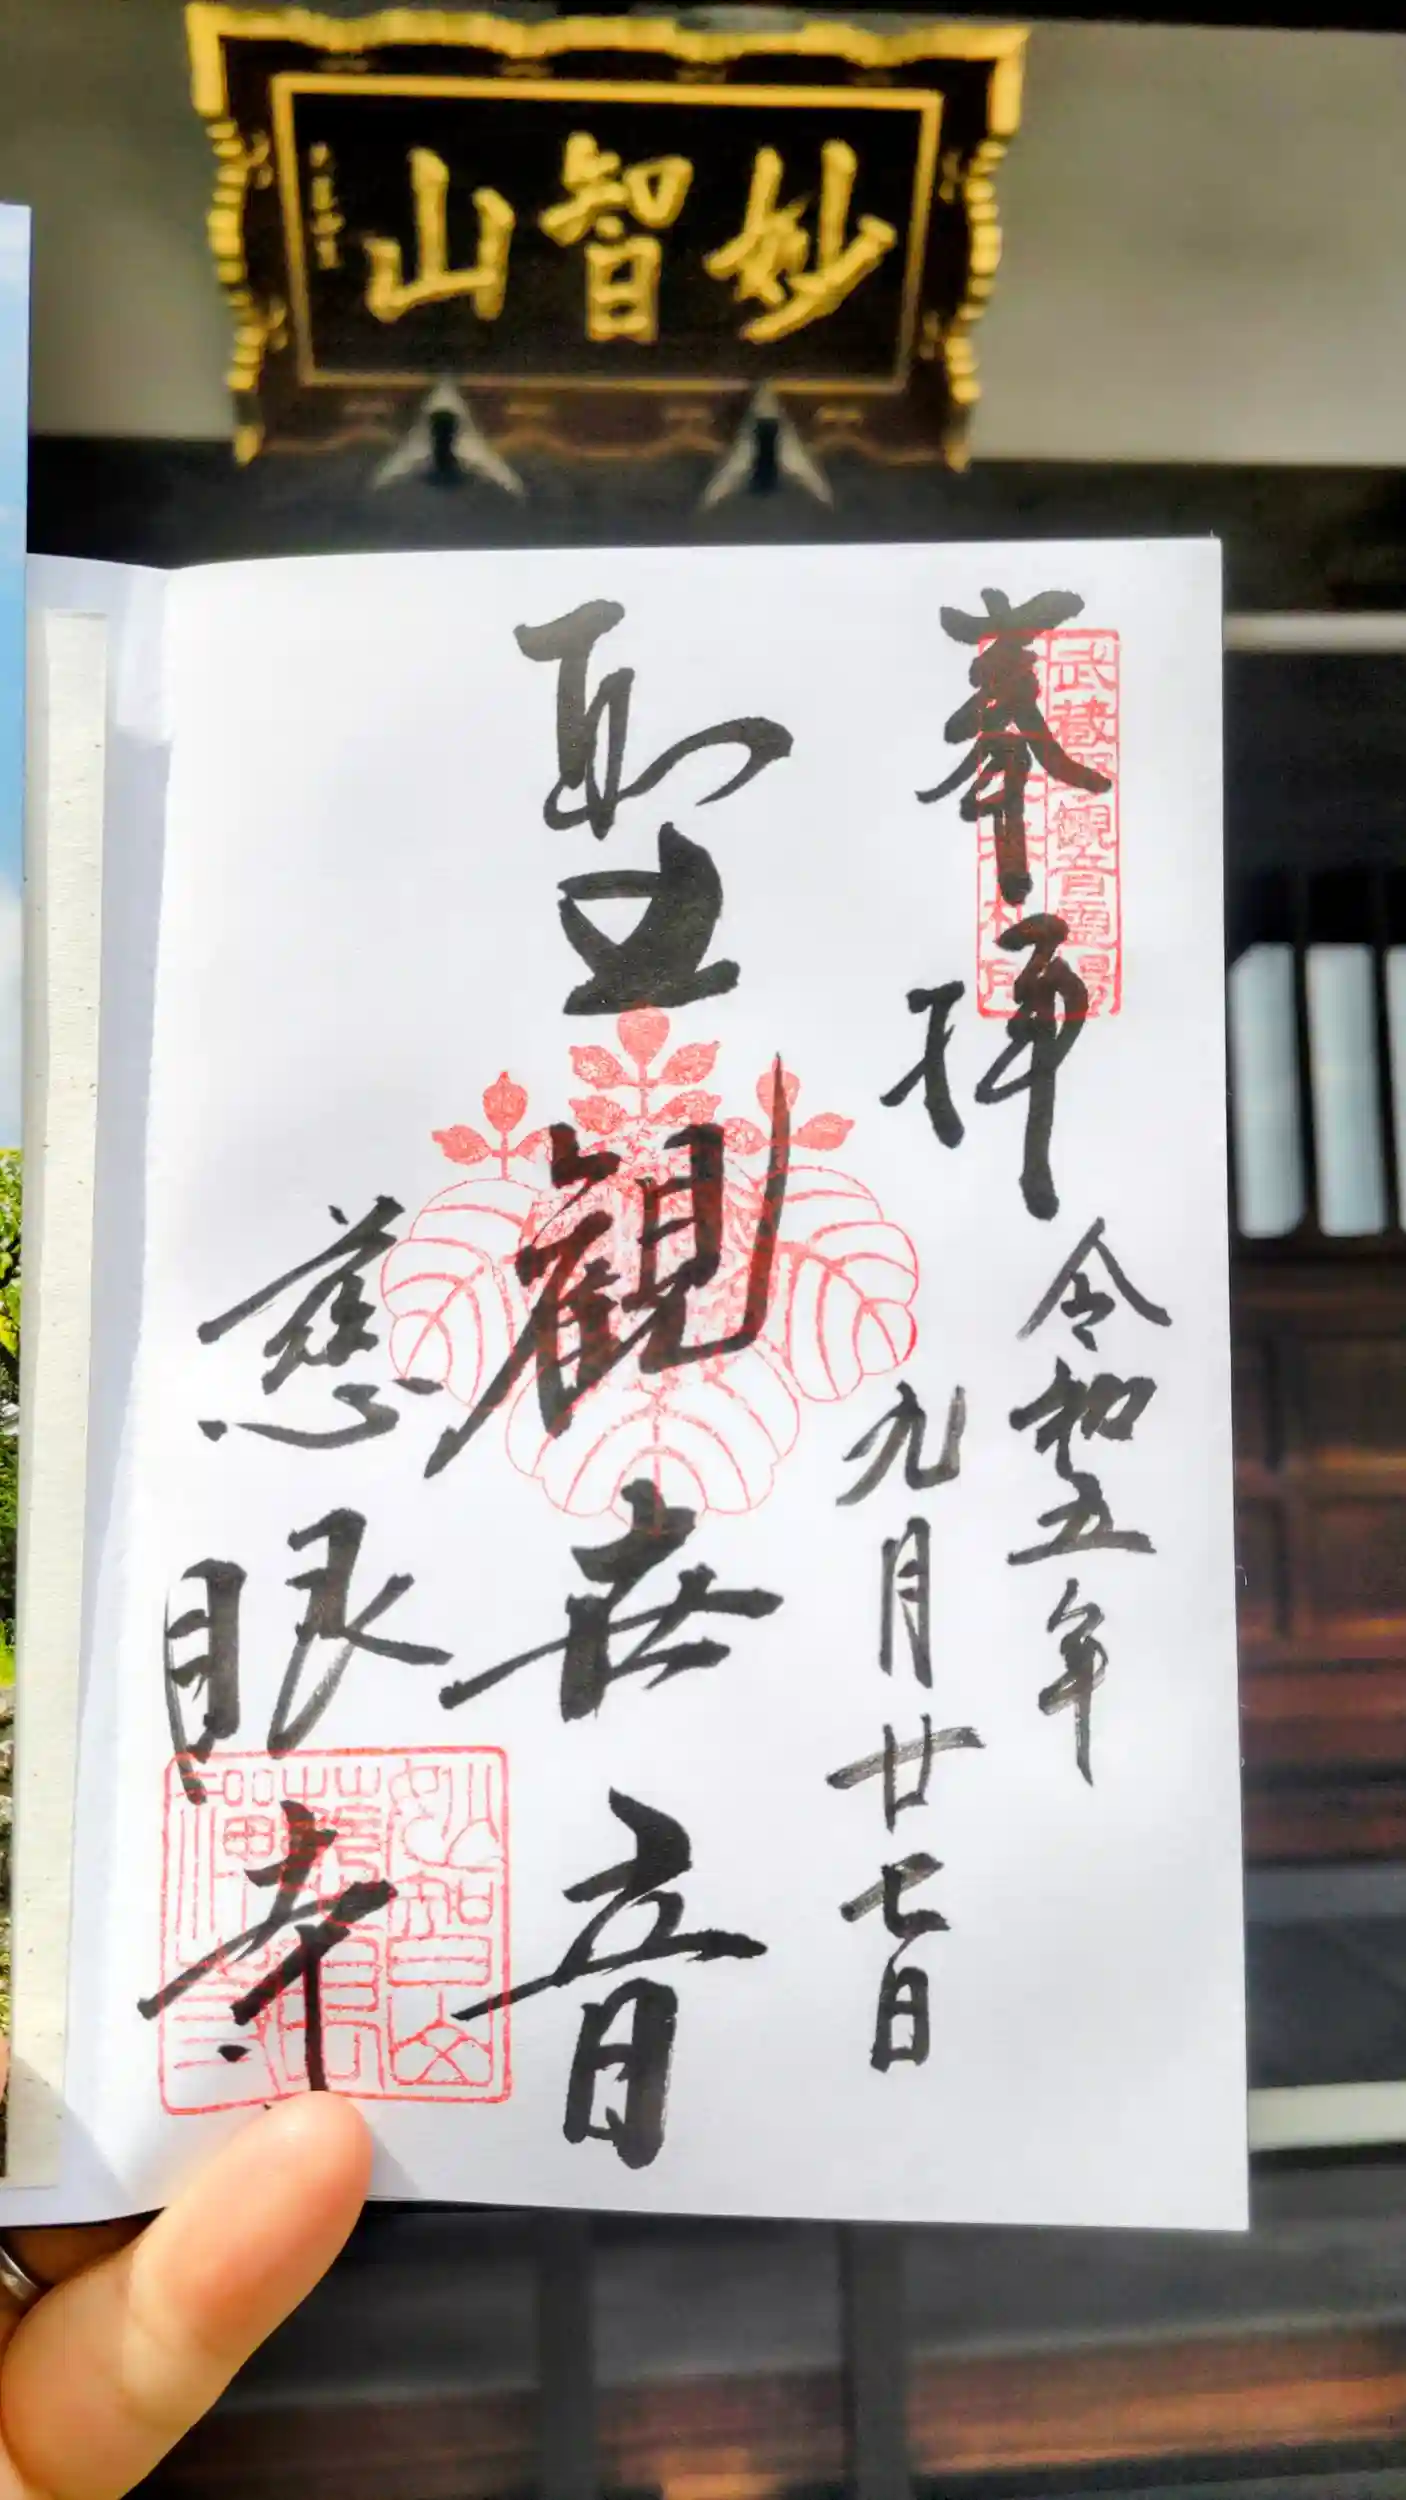 妙智山
武蔵野観音霊場
奉拝
令和五年
九月廿七日
聖観世音
慈眼寺